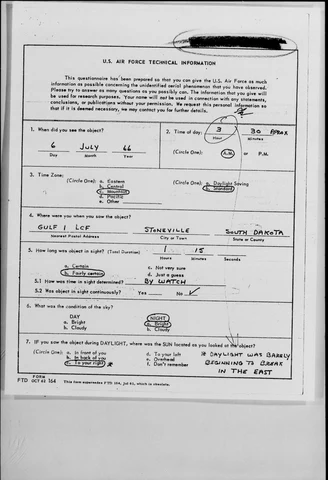 U.S. AIR FORCE TECHNICAL INFORMATION
This questionnaire has been prepared so that you can give the U.S. Air Force as much
information as possible concerning the unidentified aerial phenomenon that you have observed.
Please try to answer as many questions as you possibly can. The information that you give will
be used for research purposes. Your name will not be used in connection with any statements,
conclusions, or publications without your permission. We request this personal information so
that if it is deemed necessary, we may contact you for further details.
1. When did you see the object?
6 July 66
Day Month Year
2. Time of day: 3 30 APROX
Hour
(Circle One): A.M. or P.M.
3. Time Zone:
(Circle One): a. Eastern
b. Central
c. Mountain
d. Pacific
e. Other
(Circle One): a. Daylight Saving
b. Standard
4. Where were you when you saw the object?
GULF 1 LCF STONEVILLE SOUTH DAKOTA
Nearest Postal Address City or Town State or County
5. How long was object in sight? (Total Duration) 1 15
Hours Minutes Seconds
a. Certain c. Not very sure
b. Fairly certain d. Just a guess
5.1 How was time in sight determined? BY WATCH
5.2 Was object in sight continuously? Yes No ✓
6. What was the condition of the sky?
DAY NIGHT
a. Bright a. Bright
b. Cloudy b. Cloudy
7. IF you saw the object during DAYLIGHT, where was the SUN located as you looked at the object?
(Circle One): a. In front of you d. To your left * DAYLIGHT WAS BARELY
b. In back of you e. Overhead BEGINNING TO BREAK
c. To your right * f. Don't remember IN THE EAST
FORM
FTD OCT 62 164 This form supersedes FTD 164, Jul 61, which is obsolete.